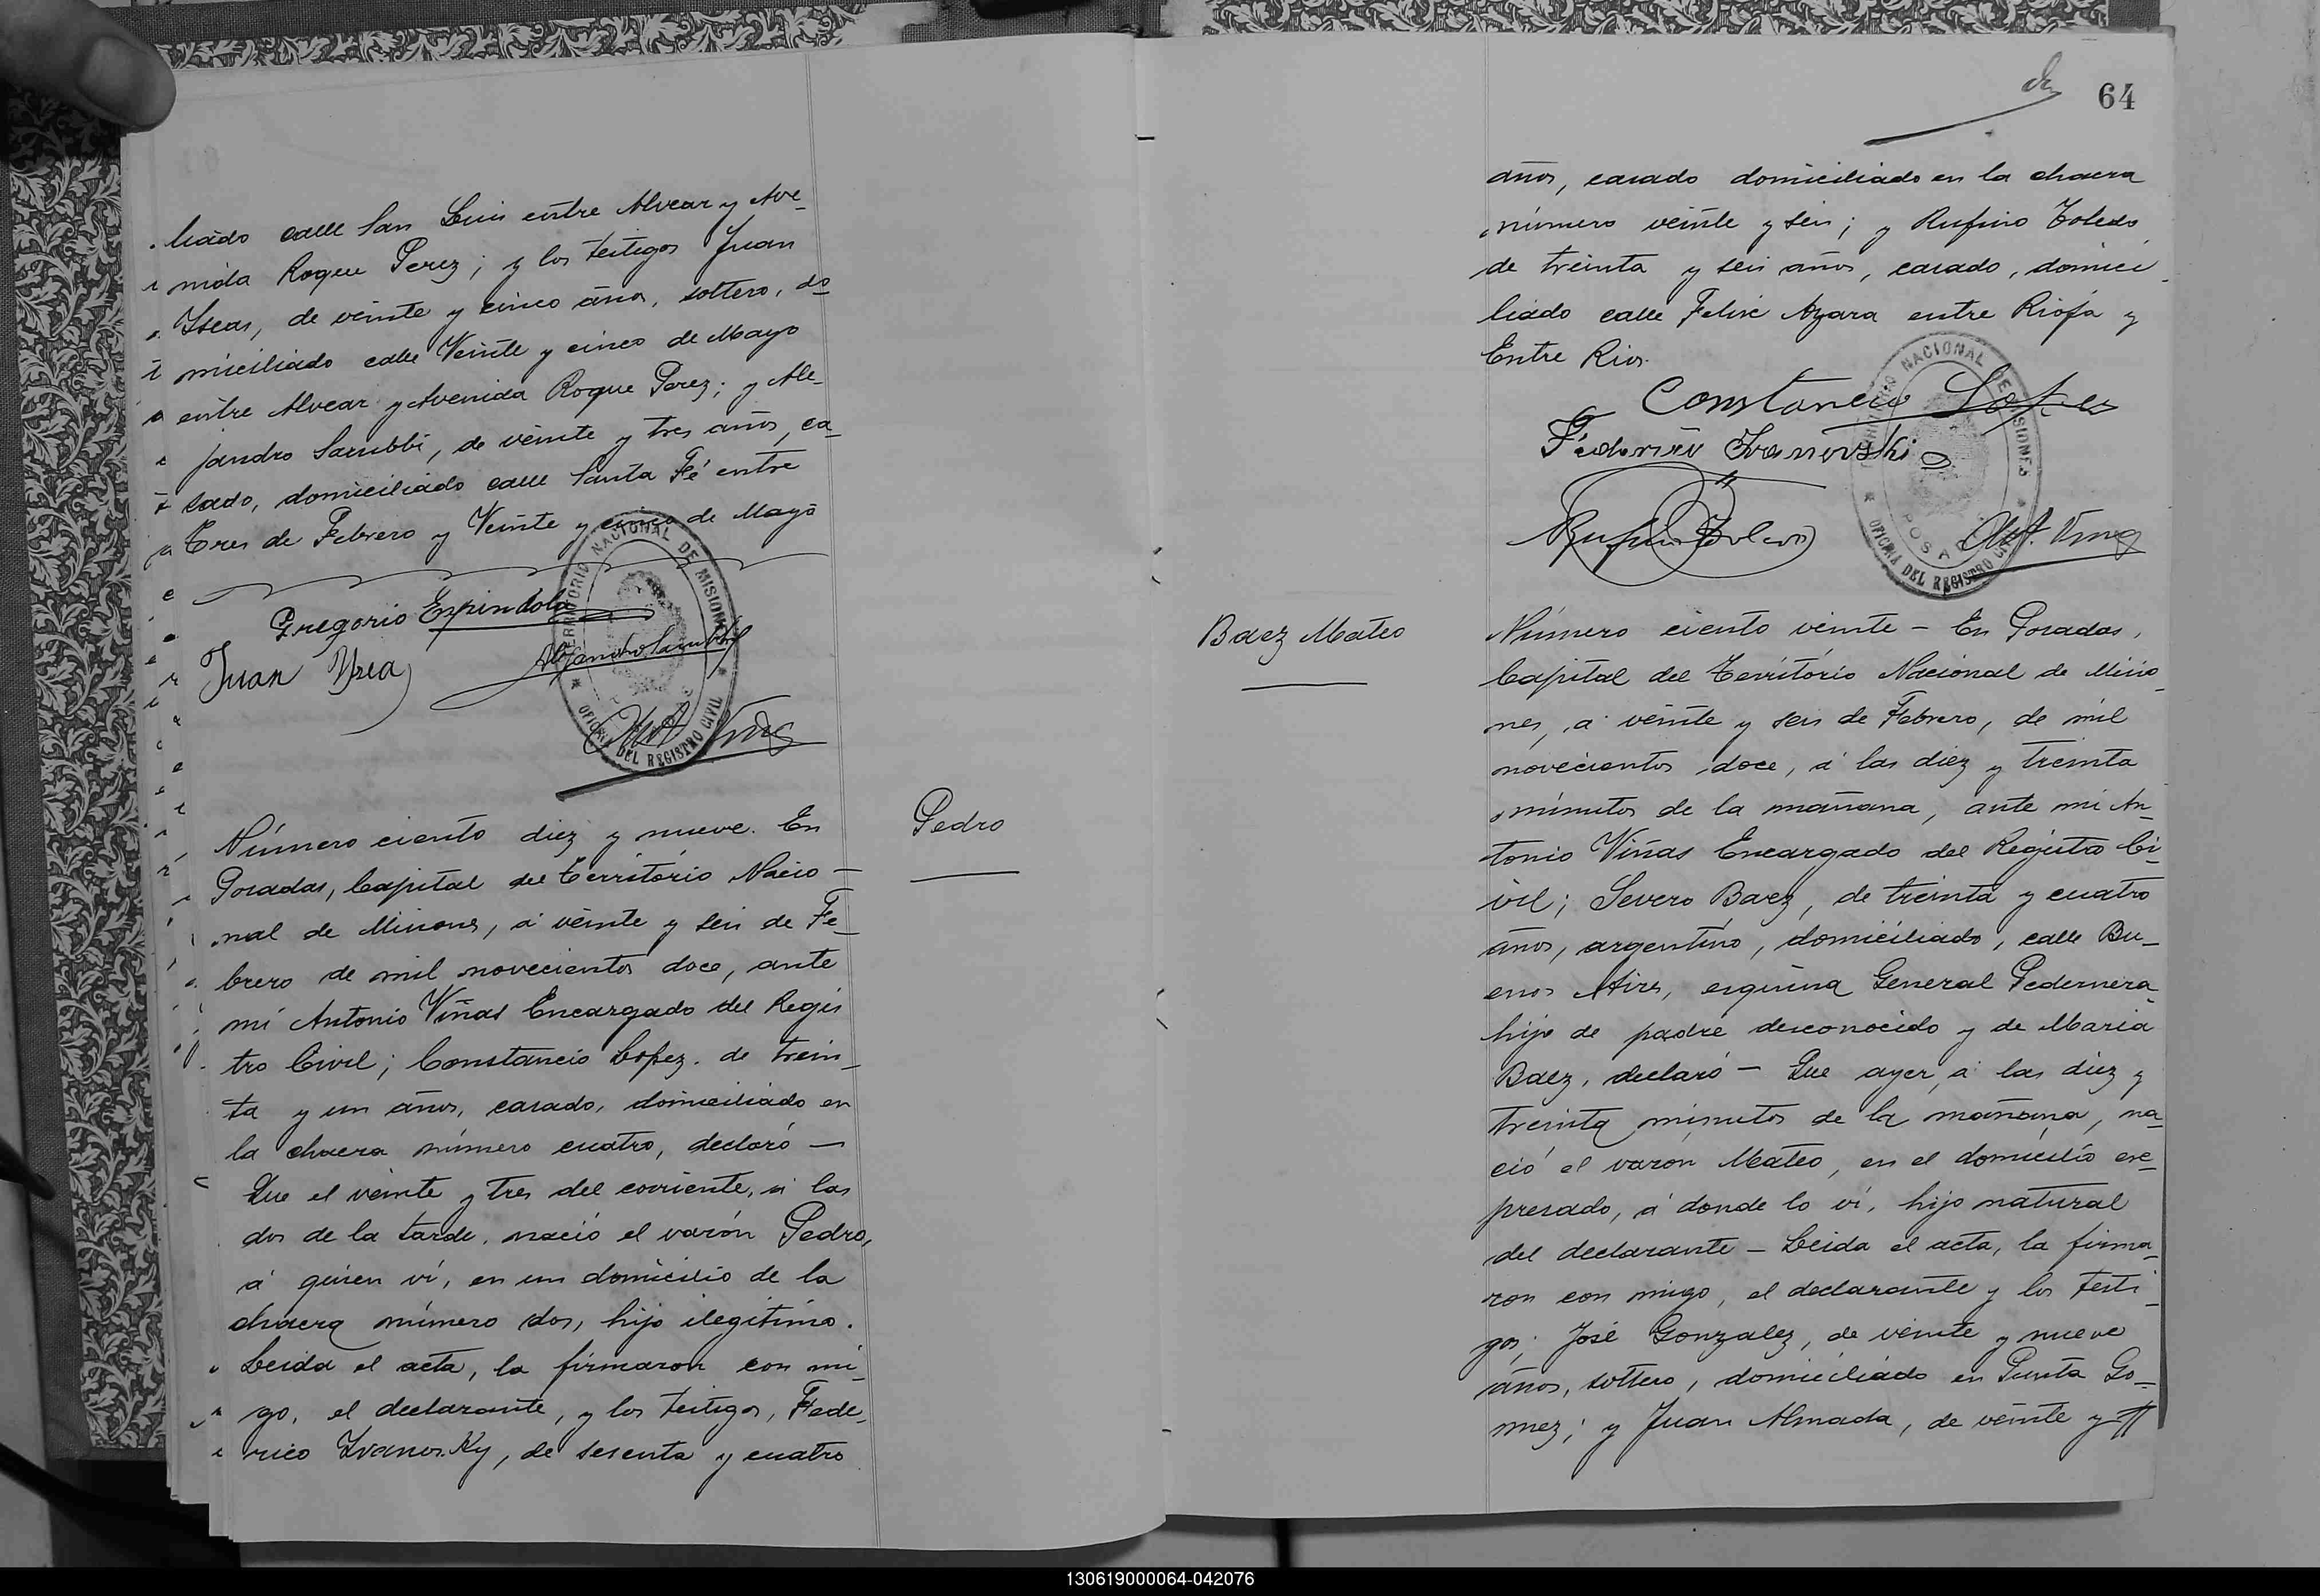 liado calle San Luis entre Alvear y Ave_
nida Roque Perez; y los testigos Juan
Yseas, de veinte y cinco años, soltero, do_
miciliado calle Veinte y cinco de Mayo
entre Alvear y Avenida Roque Perez; y Ale_
jandro Sarubbi, de veinte y tres años, ca_
sado, domiciliado calle Santa Fé entre
Tres de Febrero y Veinte y cinco de Mayo
Gregorio Espindola
Juan
Alejandro Sarubbi
TERRITORIO NACIONAL DE MISIONES
OFICINA DEL REGISTRO CIVIL
Número ciento diez y nueve. En
Posadas, Capital del Territorio Nacio_
nal de Misiones, á veinte y seis de Fe_
brero de mil novecientos doce, ante
mí Antonio Viñas Encargado del Regis
tro Civil; Constancio Lopez. de trein_
ta y un años, casado, domiciliado en
la chacra número cuatro, declaró —
Que el veinte y tres del corriente, á las
dos de la tarde, nació el varón Pedro,
á quien ví, en un domicilio de la
chacra número dos, hijo ilegítimo.
Leida el acta, la firmaron con mi_
go, el declarante, y los testigos, Fede_
rico Ivanosky, de sesenta y cuatro
Pedro
64
años, casado domiciliado en la chacra
número veinte y seis; y Rufino Toledo
de treinta y seis años, casado, domici_
liado calle Felix Azara entre Rioja y
Entre Rios.
Constancio Lopez
Federico Ivanovski
Rufino Toledo
Ant. Viñas
TERRITORIO NACIONAL DE MISIONES
POSADAS
OFICINA DEL REGISTRO CIVIL
Baez Mateo
Número ciento veinte — En Posadas,
Capital del Territorio Nacional de Misio_
nes, á veinte y seis de Febrero, de mil
novecientos doce, á las diez y treinta
minutos de la mañana, ante mi An_
tonio Viñas Encargado del Registro Ci_
vil; Severo Baez, de treinta y cuatro
años, argentino, domiciliado, calle Bu_
enos Aires, esquina General Pedernera_
hijo de padre desconocido y de Maria
Baez, declaró — Que ayer, á las diez y
treinta minutos de la mañana, na_
ció el varón Mateo, en el domicilio ex_
presado, á donde lo ví, hijo natural
del declarante — Leida el acta, la firma_
ron con migo, el declarante y los testi_
gos; José Gonzalez, de veinte y nueve
años, soltero, domiciliado en Punta Go_
mez; y Juan Almada, de veinte y
130619000064-042076